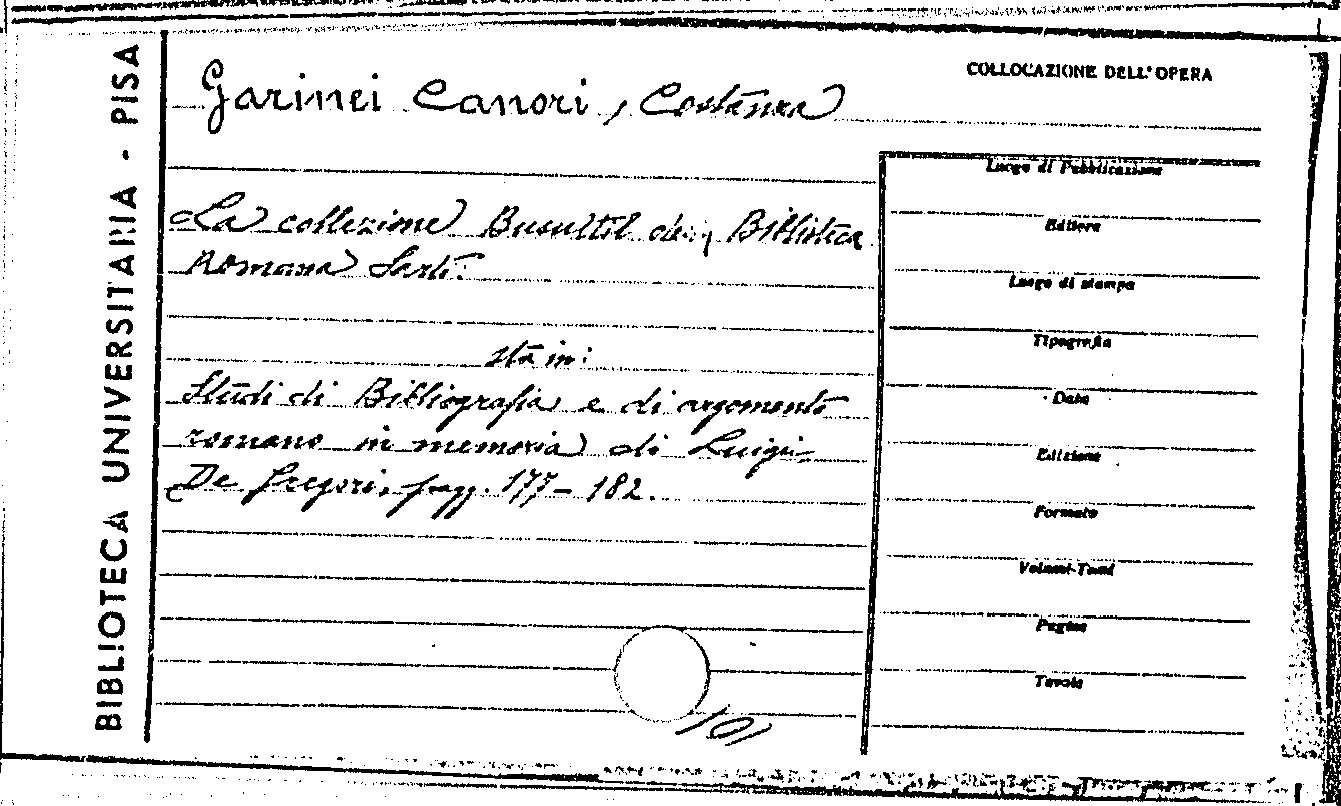 BIBLIOTECA UNIVERSITARIA - PISA
Garinei Canori, Costanza
COLLOCAZIONE DELL'OPERA
La collezione Busuttil Biblioteca
Romana Sarti.
sta in:
Studi di Bibliografia e di argomento
romano in memoria di Luigi
De Gregori, pagg. 177-182.
Luogo di Pubblicazione
Editore
Luogo di stampa
Tipografia
Data
Edizione
Formato
Volumi-Tomi
Pagine
Tavole